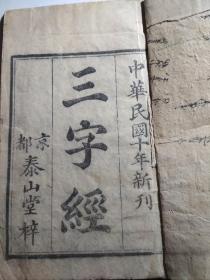 中華民國十年新刊
三字經
京都
泰山堂梓